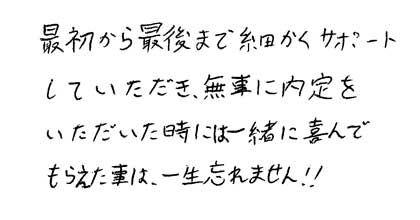 最初から最後まで細かくサポート
していただき、無事に内定を
いただいた時には一緒に喜んで
もらえた事は、一生忘れません!!